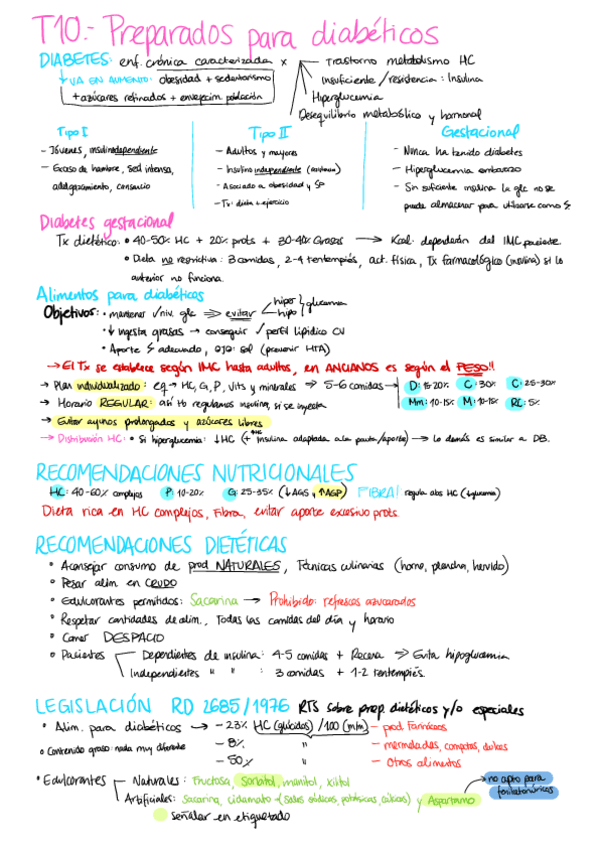 T10.- Preparados para diabéticos
DIABETES: enf. crónica caracterizada x Trastorno metabolismo HC
↓ VA EN AUMENTO: obesidad + sedentarismo
+ azúcares refinados + envejecim. población
Insuficiente / resistencia: Insulina
Hiperglucemia
Desequilibrio metabólico y hormonal
Tipo I
- Jóvenes, insulindependiente
- Exceso de hambre, sed intensa,
adelgazamiento, cansancio
Tipo II
- Adultos y mayores
- Insulino independiente
- Asociado a obesidad y SP
- Tx: dieta + ejercicio
Gestacional
- Nunca ha tenido diabetes
- Hiperglucemia embarazo
- Sin suficiente insulina la glc no se
puede almacenar para utilizarse como
Diabetes gestacional
Tx dietético: • 40-50% HC + 20% prots + 30-40% Grasas → Kcal: dependerán del IMC paciente.
• Dieta no restrictiva: 3 comidas, 2-4 tentempiés, act. física, Tx farmacológico (insulina) si lo
anterior no funciona.
Alimentos para diabéticos
Objetivos: • mantener niv. glc ⇒ evitar hiper hipo glucemia
• ↓ ingesta grasas → conseguir ✓ perfil lipídico CV
• Aporte adecuado, OJO: sal (prevenir HTA)
→ El Tx se establece según IMC hasta adultos, en ANCIANOS es según el PESO!!
→ Plan individualizado: eq → HC, G, P, Vits y minerales ⇒ 5-6 comidas → D: 15-20% C: 30% C: 25-30%
→ Horario REGULAR: así regulamos insulina, si se inyecta Mm: 10-15% M: 10-15% RC: 5%
→ Evitar ayunos prolongados y azúcares libres
→ Distribución HC: • Si hiperglucemia: ↓HC (+ insulina adaptada a la pauta/aporte) → lo demás es similar a DB.
RECOMENDACIONES NUTRICIONALES
HC: 40-60% complejos P: 10-20% G: 25-35% (↓AGS, ↑AGP) FIBRA! regula abs HC (↓glucemia)
Dieta rica en HC complejos, Fibra, evitar aporte excesivo prots.
RECOMENDACIONES DIETÉTICAS
• Aconsejar consumo de prod NATURALES, Técnicas culinarias (horno, plancha, hervido)
• Pesar alim. en CRUDO
• Edulcorantes permitidos: Sacarina → Prohibido: refrescos azucarados
• Respetar cantidades de alim., Todas las comidas del día y horario
• Comer DESPACIO
• Pacientes Dependientes de insulina: 4-5 comidas + Recena ⇒ Evita hipoglucemia
Independientes " " : 3 comidas + 1-2 tentempiés.
LEGISLACIÓN RD 2685/1976 RTS sobre prep. dietéticos y/o especiales
• Alim. para diabéticos → - 23% HC (glúcidos) /100 (m/m) - prod. Farináceos
• Contenido graso: nada muy diferente - 8% " - mermeladas, compotas, dulces
- 50% " - Otros alimentos
• Edulcorantes Naturales: Fructosa, Sorbitol, manitol, xilitol
Artificiales: Sacarina, ciclamato (Sales sódicas, potásicas, cálcicas) y Aspartamo
no apto para
fenilcetonúricos
señalar en etiquetado